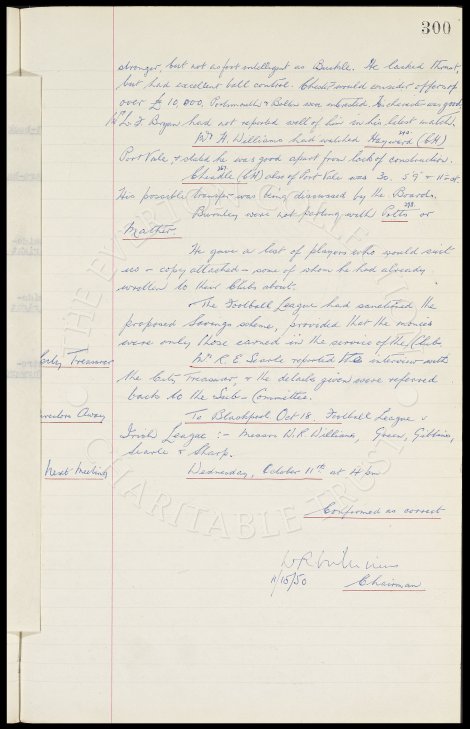 300
stronger, but not as fast or intelligent as Buckle. He lacked thrust,
but had excellent ball control. Chester would consider offers of
over £10,000. Portsmouth & Bolton were interested. His character was good
Mr L. F. Bryan had not reported well of him in his latest match.
Mr H. Williams had watched Hayward (CH)
Port Vale & stated he was good apart from lack of construction.
Cheadle (CH) also of Port Vale was 30. 5'9" & 11½ st.
His possible transfer was being discussed by the Boards.
Burnley were not parting with Potts or
Mather.
He gave a list of players who would suit
us - copy attached - some of whom he had already
written to their Clubs about.
The Football League had sanctioned the
proposed Savings scheme, provided that the monies
were only those earned in the service of the Club.
City Treasurer
Mr R. E. Searle reported the interview with
the City Treasurer, & the details given were referred
back to the Sub-Committee.
Away
To Blackpool Oct 18. Football League v
Irish League :- Messrs W.R. Williams, Green, Gibbins,
Searle & Sharp.
Next Meeting
Wednesday, October 11th at 4 pm
Confirmed as correct
W R Williams
11/10/50
Chairman
THE EVERTON
CHARITABLE TRUST